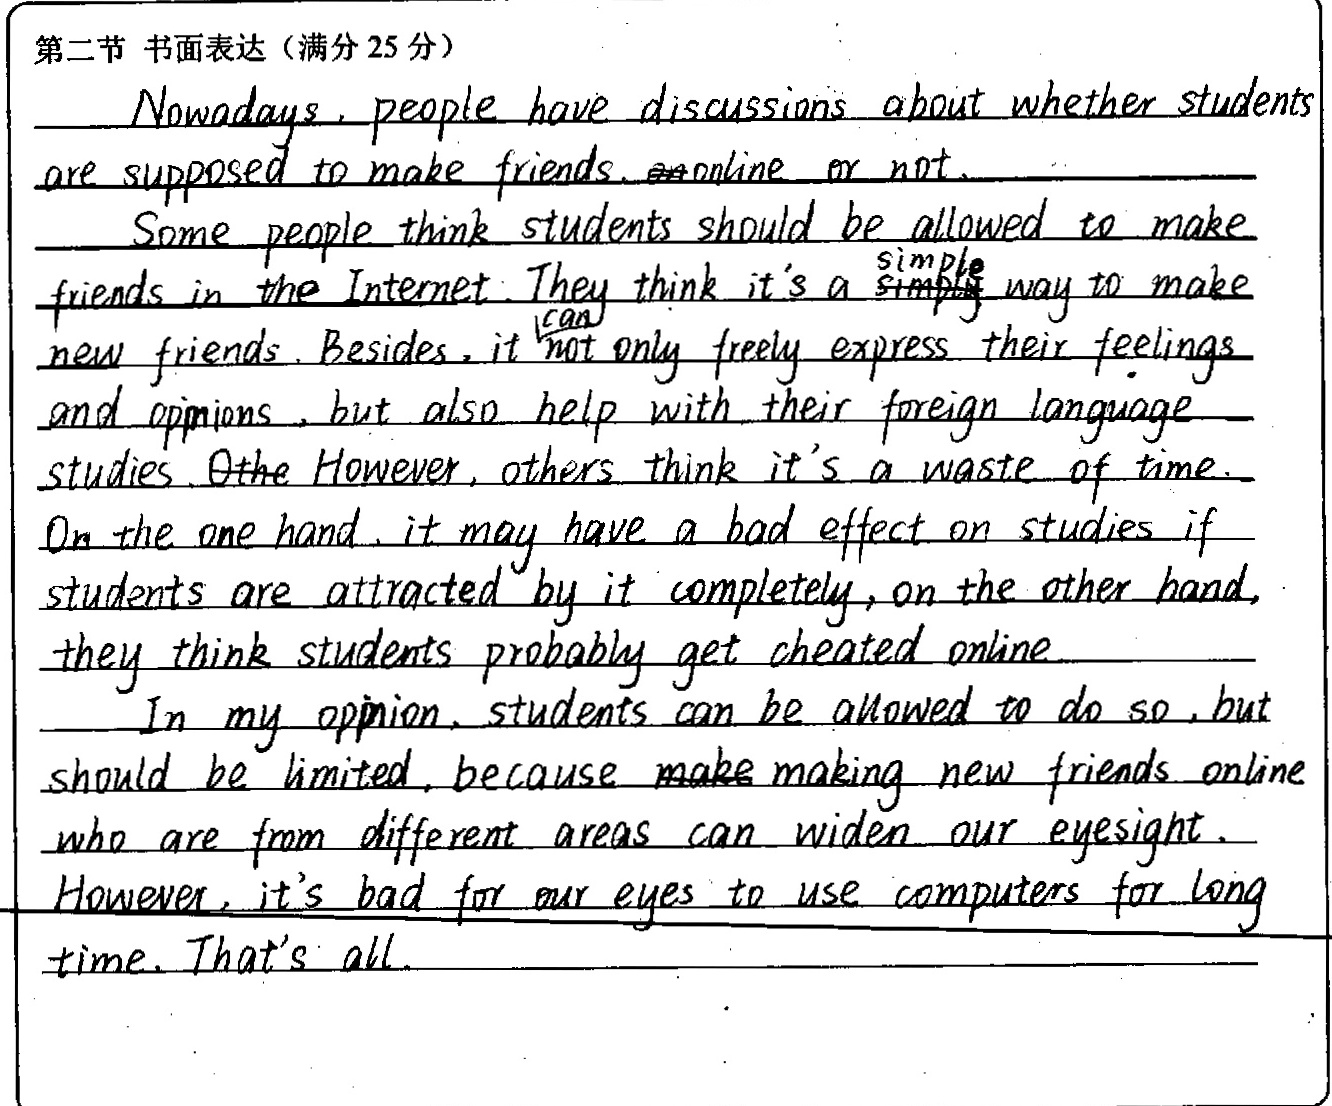 第二节 书面表达（满分 25 分）
Nowadays, people have discussions about whether students
are supposed to make friends online or not.
Some people think students should be allowed to make
friends in the Internet. They think it's a simple way to make
new friends. Besides, it can not only freely express their feelings
and opinions, but also help with their foreign language
studies. However, others think it's a waste of time.
On the one hand, it may have a bad effect on studies if
students are attracted by it completely, on the other hand,
they think students probably get cheated online
In my opinion, students can be allowed to do so, but
should be limited, because making new friends online
who are from different areas can widen our eyesight.
However, it's bad for our eyes to use computers for long
time. That's all.